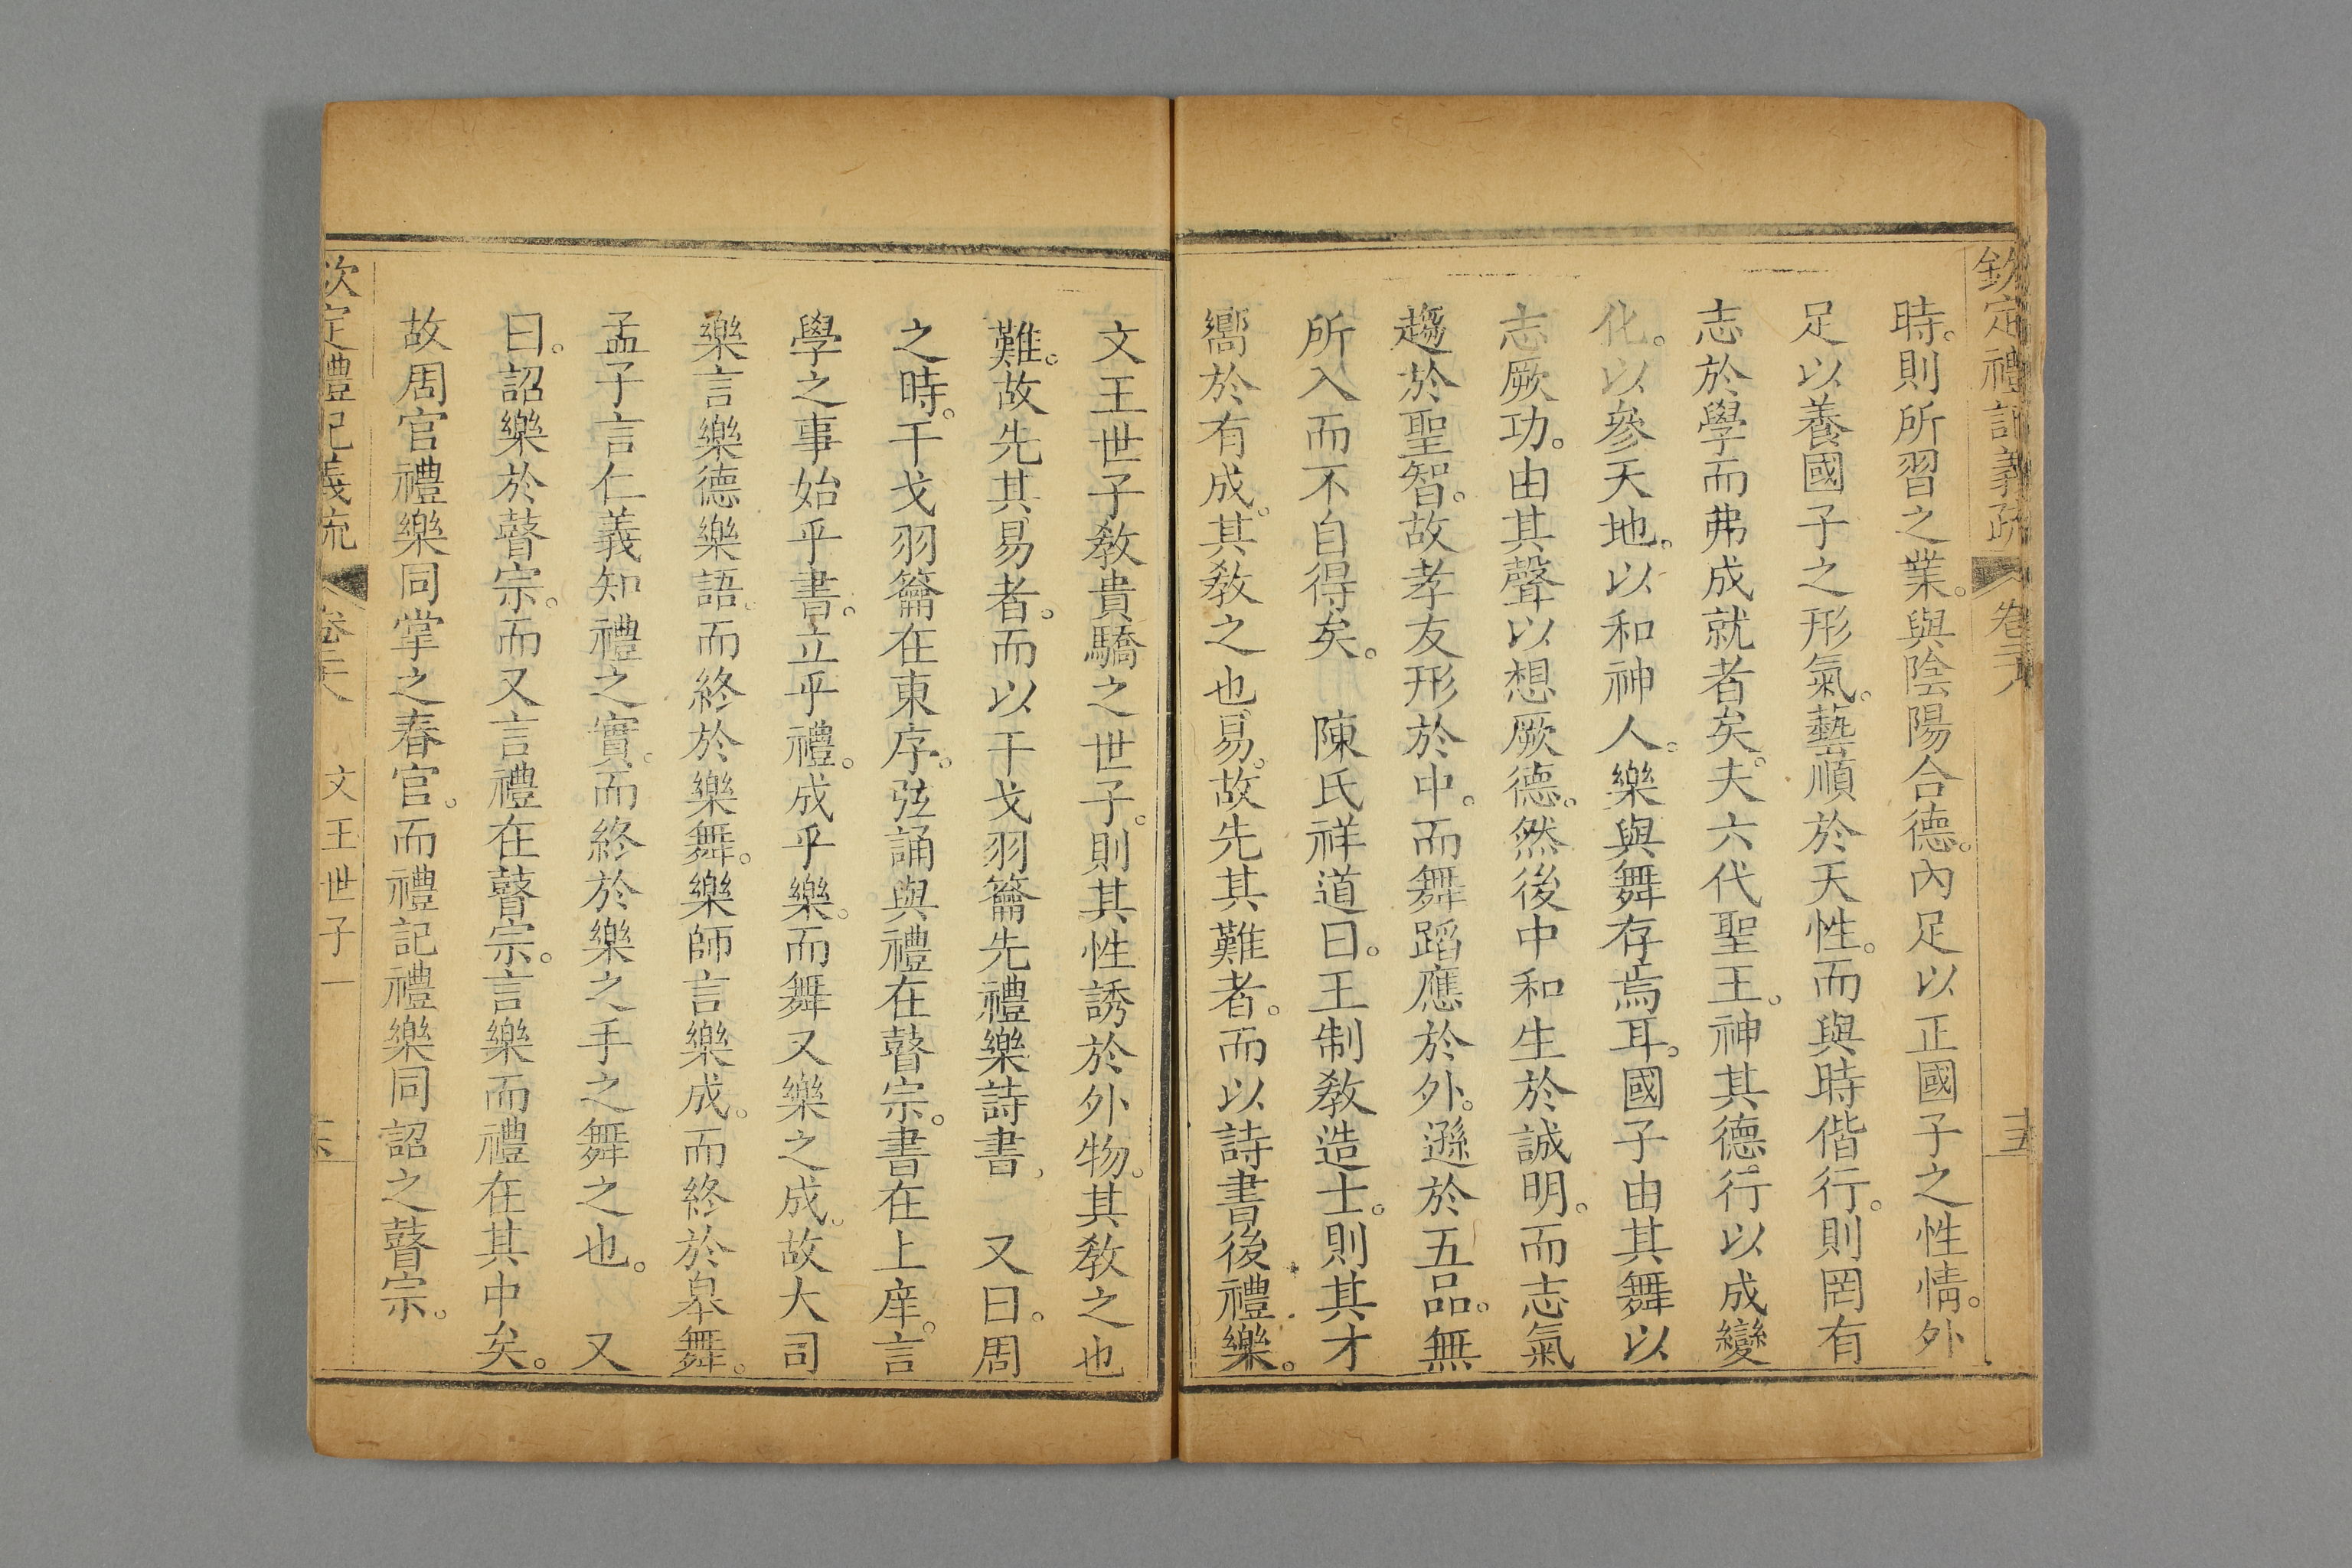 欽定禮記義疏 卷二十八 十五
時。則所習之業。與陰陽合德。內足以正國子之性情。外
足以養國子之形氣。藝順於天性。而與時偕行。則罔有
志於學而弗成就者矣。夫六代聖王。神其德行以成變
化。以參天地。以和神人。樂與舞存焉耳。國子由其舞以
志厥功。由其聲以想厥德。然後中和生於誠明。而志氣
趨於聖智。故孝友形於中。而舞蹈應於外。遜於五品。無
所入而不自得矣。 陳氏祥道曰。王制教造士。則其才
嚮於有成。其教之也易。故先其難者。而以詩書後禮樂。
文王世子教貴驕之世子。則其性誘於外物。其教之也
難。故先其易者。而以干戈羽籥先禮樂詩書、 又曰。周
之時。干戈羽籥在東序。弦誦與禮在瞽宗。書在上庠。言
學之事始乎書。立乎禮。成乎樂。而舞又樂之成。故大司
樂言樂德樂語。而終於樂舞。樂師言樂成。而終於皋舞。
孟子言仁義知禮之實。而終於樂之手之舞之也。 又
曰。詔樂於瞽宗。而又言禮在瞽宗。言樂而禮在其中矣。
故周官禮樂同掌之春官。而禮記禮樂同詔之瞽宗。
欽定禮記義疏 卷二十八 文王世子一